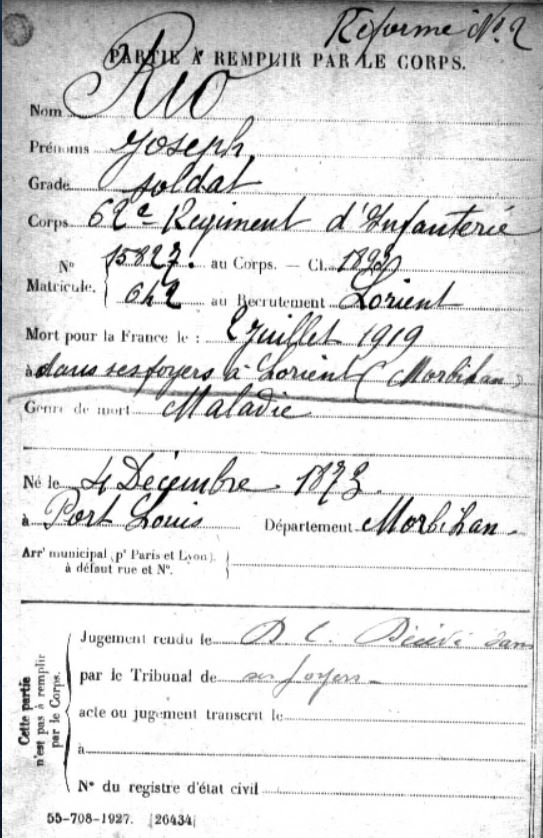 Réforme N° 2
PARTIE À REMPLIR PAR LE CORPS.
Nom Rio
Prénoms Joseph
Grade soldat
Corps 62e Régiment d'Infanterie
N° 15827. au Corps. — Cl. 1893
Matricule. 642 au Recrutement Lorient
Mort pour la France le : 2 Juillet 1919
à dans ses foyers à Lorient (Morbihan)
Genre de mort Maladie
Né le 4 Décembre 1873.
à Port Louis Département Morbihan.
Arrt municipal (pr Paris et Lyon).
à défaut rue et N°.
Cette partie
n'est pas à remplir
par le Corps.
Jugement rendu le D C. Décédé dans
par le Tribunal de ses foyers
acte ou jugement transcrit le
à
N° du registre d'état civil
55-708-1927. [26434]